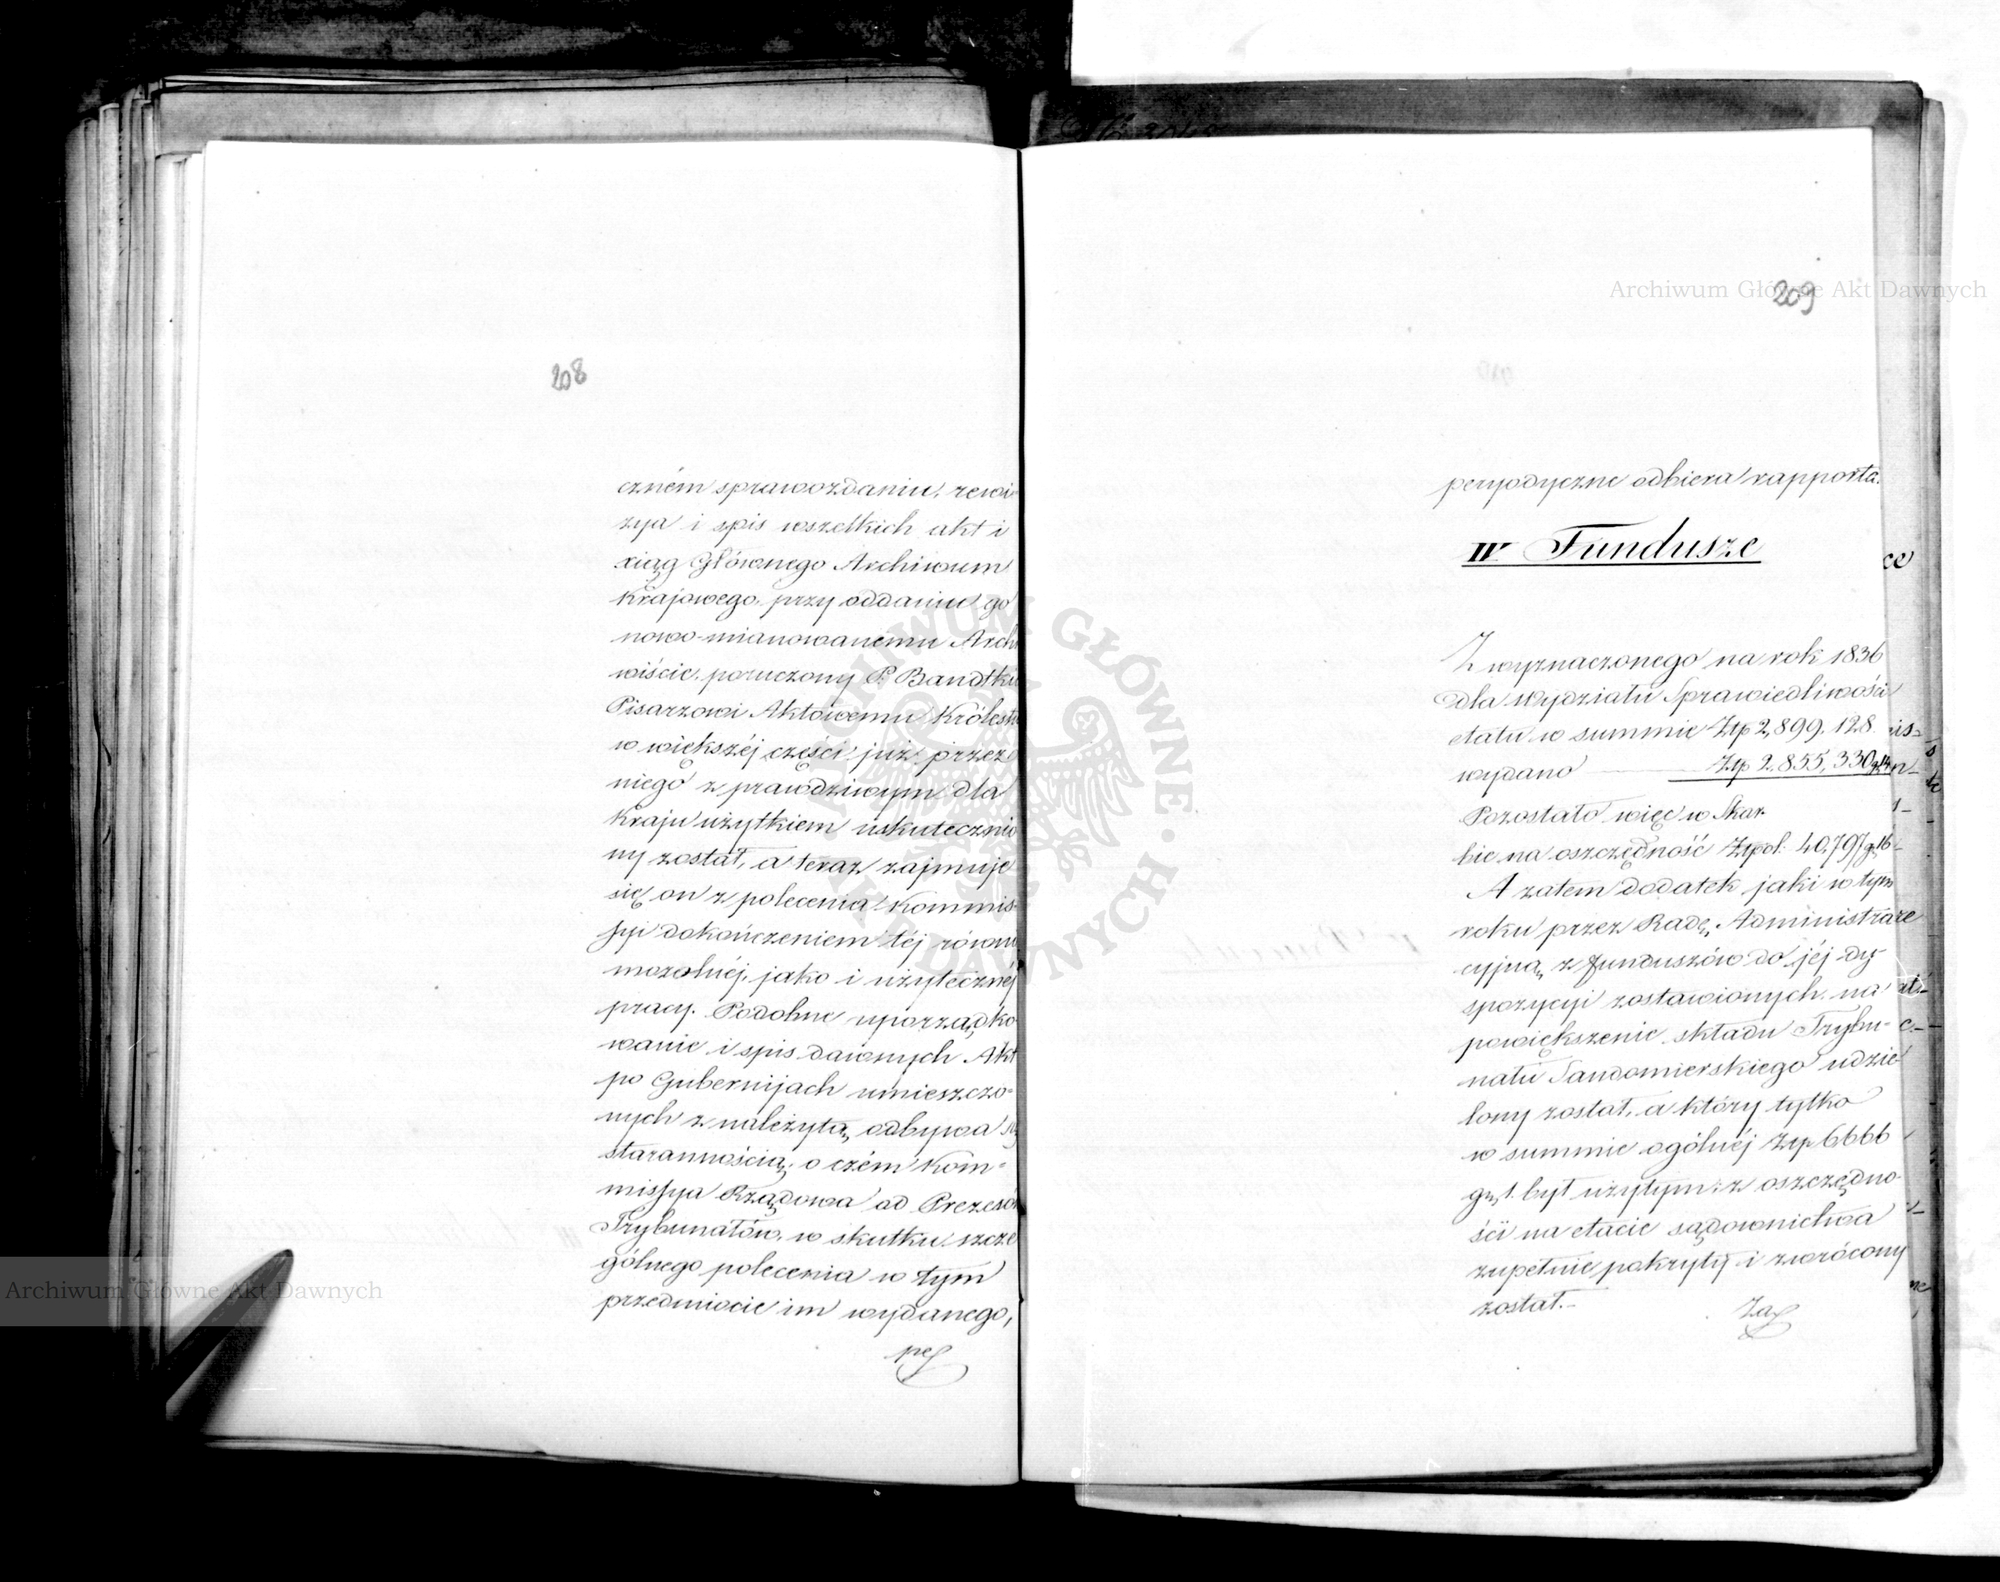 208
czném sprawozdaniu, rewi-
zya i spis wszelkich akt i
xiąg Głównego Archiwum
Krajowego, przy oddaniu go
nowo-mianowanemu Archi
wiście, poruczony P. Bandtki
Pisarzowi Aktowemu Królest
w większéj części już przez
niego z prawdziwym dla
Kraju użytkiem uskutecznio
ny został, a teraz zajmuje
się on z polecenia Kommis-
syi dokończeniem téj równi
mozolnéj, jako i użytecznéj
pracy. Podobne uporządko
wanie i spis dawnych Akt
po Gubernijach umieszczo-
nych z należytą odbywa się
starannością, o czém Kom-
missya Rządowa od Prezesów
Trybunałów, w skutku szcze
gólnego polecenia w tym
przedmiocie im wydanego,
pe
209
peryodyczne odbiera rapporta.
IV Fundusze
Z wyznaczonego na rok 1836
dla Wydziału Sprawiedliwości
etatu w summie Złp 2,899,128
wydano Złp 2,855,330 g 14
Pozostało więc w Skar-
bie na oszczędność Złpol. 40,797 g 16
A zatem dodatek jaki w tym
roku przez Radę Administra
cyjną z funduszów do jéj dy-
spozycyi zostawionych na
powiększenie składu Trybu-
nału Sandomierskiego udzie
lony został, a który tylko
w summie ogólnéj Złp 6666
gr. 1. był użytym, z oszczędno-
ści na etacie sądownictwa
zupełnie pokryty i zwrócony
został.-
Za
Archiwum Główne Akt Dawnych
Archiwum Główne Akt Dawnych
ARCHIWUM GŁÓWNE AKT DAWNYCH